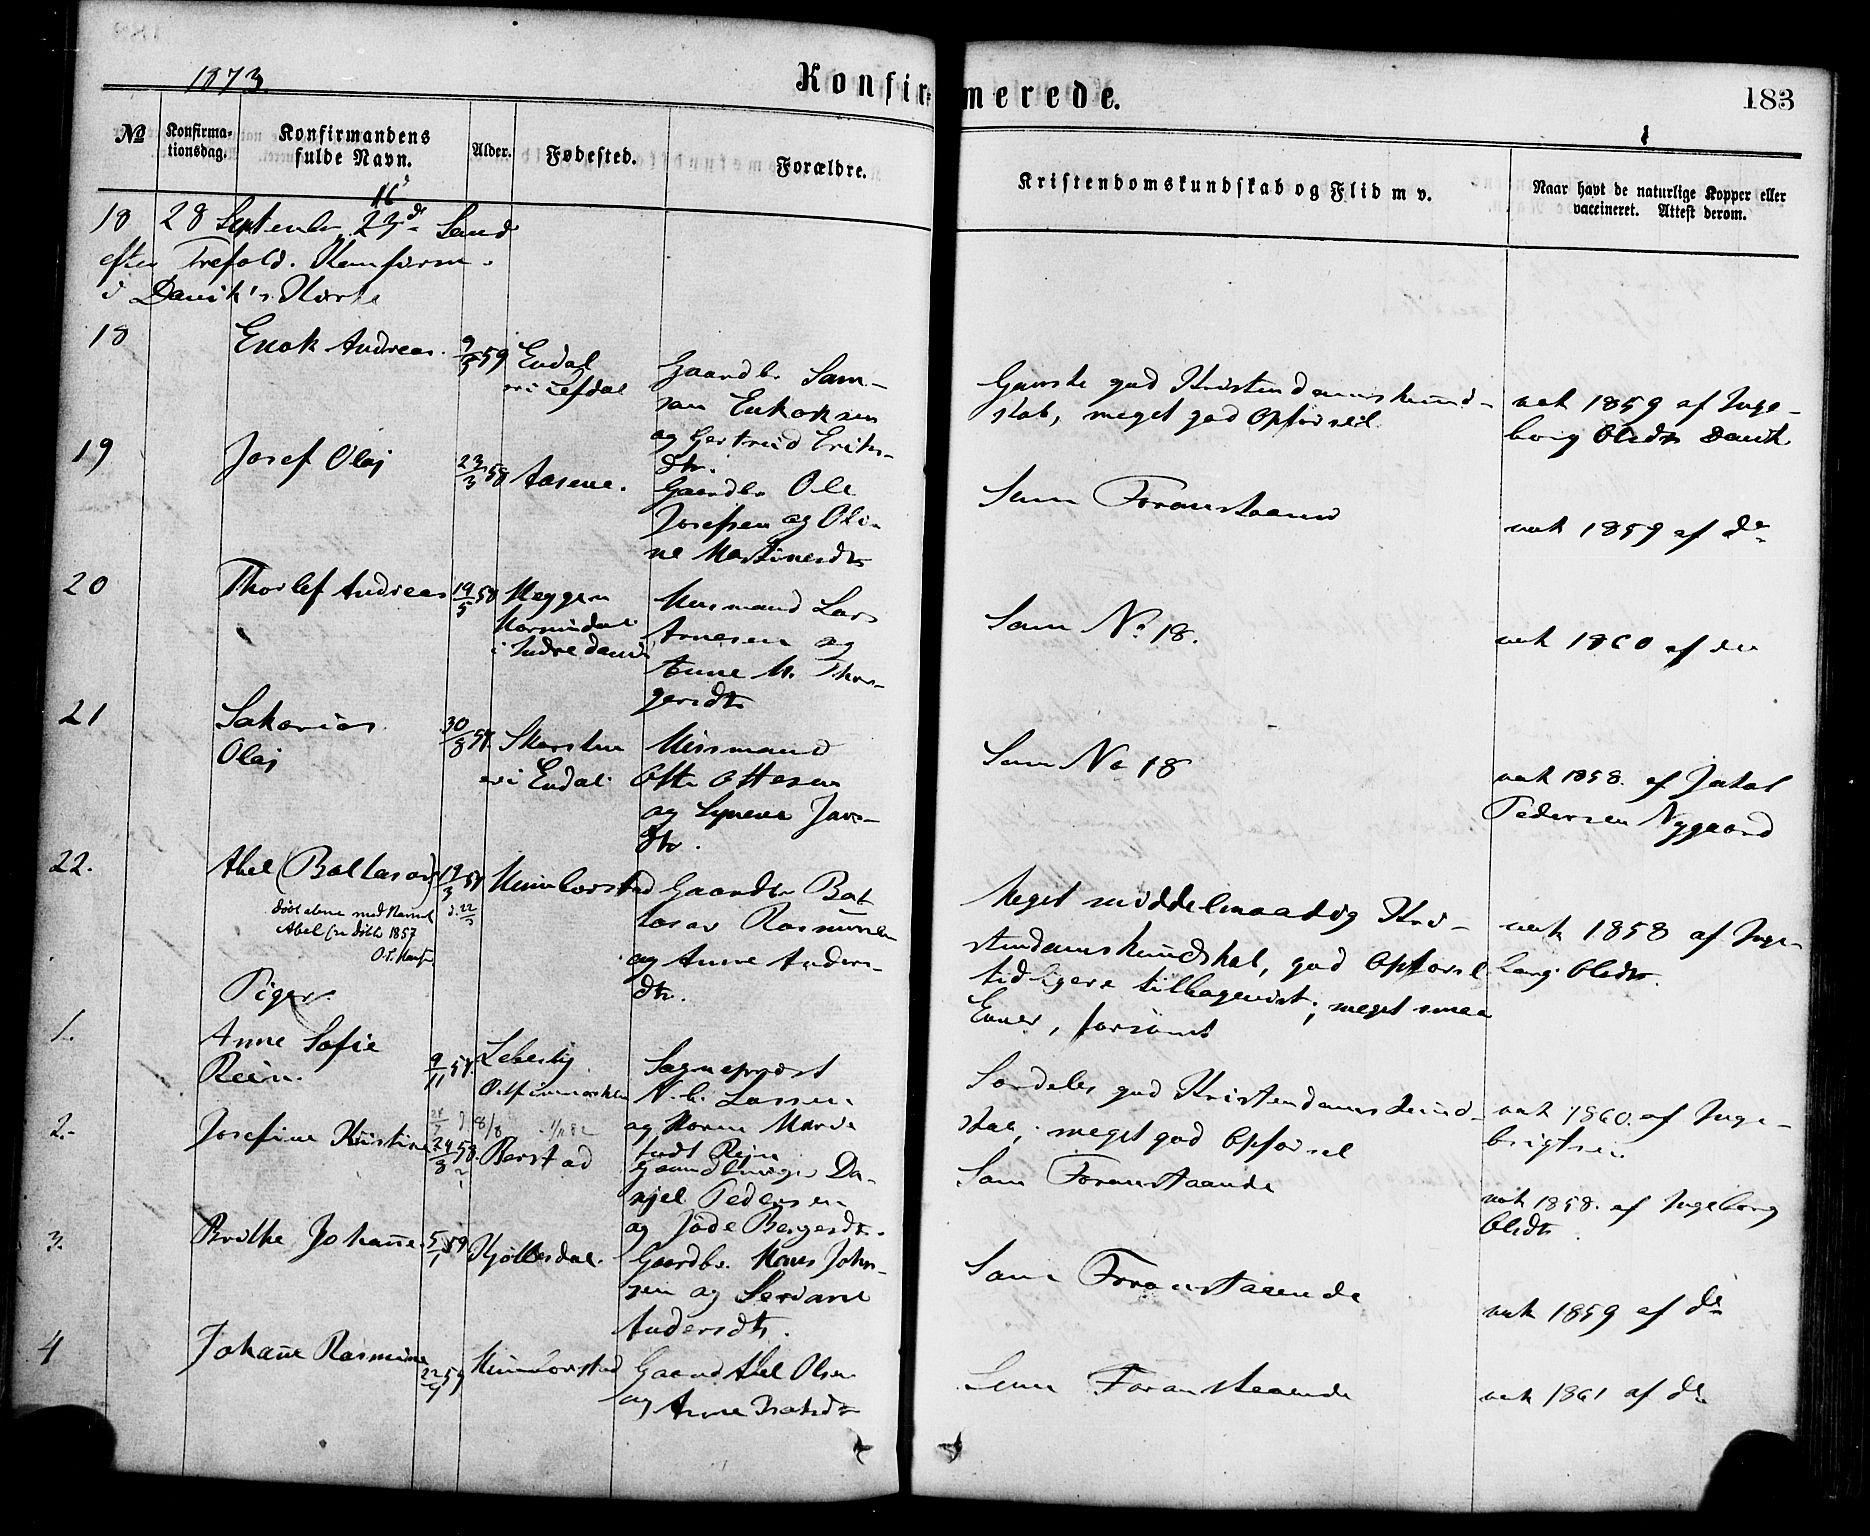 1873.
Konfirmerede.
183
№
Konfirma-
tionsdag.
Konfirmandens
fulde Navn.
Alder.
Fødested.
Forældre.
Kristendomskundskab og Flid m v.
Naar havt de naturlige Kopper eller
vaccineret. Attest derom.
16
18 28 September 23de Sønd
efter Trefold. Konfirm.
i Davik's Kirke
18
Enok Andreas.
9/3 59
Endal
Gaardbr Sam-
sen Enoksen
og Gertrud Eriks-
dtr.
Ganske god Kristendomskund-
skab, meget god Opførsel
vak 1859 af Inge-
borg Olsdtr Davik
19
Josef Olaj
23/3 58
Aasene.
Gaardbr Ole
Josefsen og Oli-
ne Martinesdtr
Som Foranstaaend
vak 1859 af do
20
Thorlef Andreas
19/5 58
i Indre
Husmand Lars
Arnesen og
Anne M. Thor-
gersdtr
Som No 18.
vak 1860 af do
21
Sakarias
Olaj
30/8 57
Skorsten
i Endal
Husmand
Otte Ottesen
og
dtr.
Som No 18
vak 1858. af Jakob
Pedersen Nygaard
22.
Abel (Baltasar)
19/3 57
d. 22/3
døbt alene med Navnet
Abel
1857
Gaardbr Bal-
tasar Rasmussen
og Anne Anders-
dtr.
Meget middelmaadig Kri-
stendomskundskab, god Opførsel
tidligere tilbagevist; meget smaa
Evner, forsømt
vak 1858 af Inge-
borg Olsdtr.
Piger.
1.
Anne Sofie
Rein.
9/11 57.
Lebesby
Ostfinmarken
Sogneprest
Lassen
og Karen Marie
født Rein
Særdeles god Kristendomskund-
skab; meget god Opførsel
vak 1860. af Inge-
brigtsen
2.
Josefine Kristine
24/8 58.
Barstad
Gaardbruger Da-
niel Pedersen
og Jøde Bergersdtr.
Som Foranstaaende
vak 1858. af Ingeborg
Olsdtr
3.
Brithe Johanne
5/1 59
Kjøllesdal.
Gaardbr. Hans Johan-
sen og
Andersdtr.
Som Foranstaaende
vak 1859 af do
4
Johanne Rasmine
59
Gaard Abel Olsen
og Anne
Som Foranstaaende
vak 1861 af do